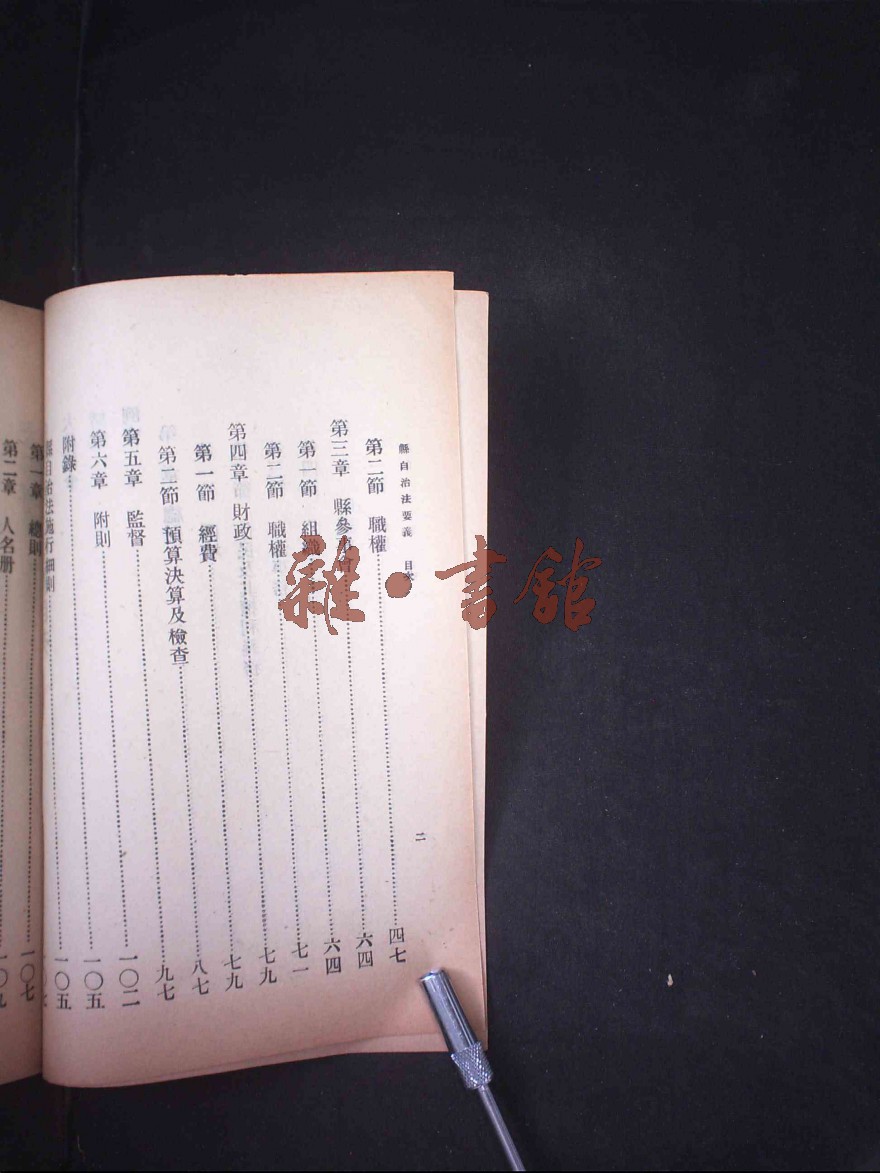 縣自治法要義 目次 二
第二節 職權 四七
第三章 縣參事會 六四
第一節 組織 六四
第二節 職權 七一
第四章 財政 七九
第一節 經費 七九
第二節 預算決算及檢查 八七
第五章 監督 九七
第六章 附則 一〇二
附錄 一〇五
縣自治法施行細則 一〇五
第一章 總則 一〇七
第二章 人名册 一〇九
雜·書館